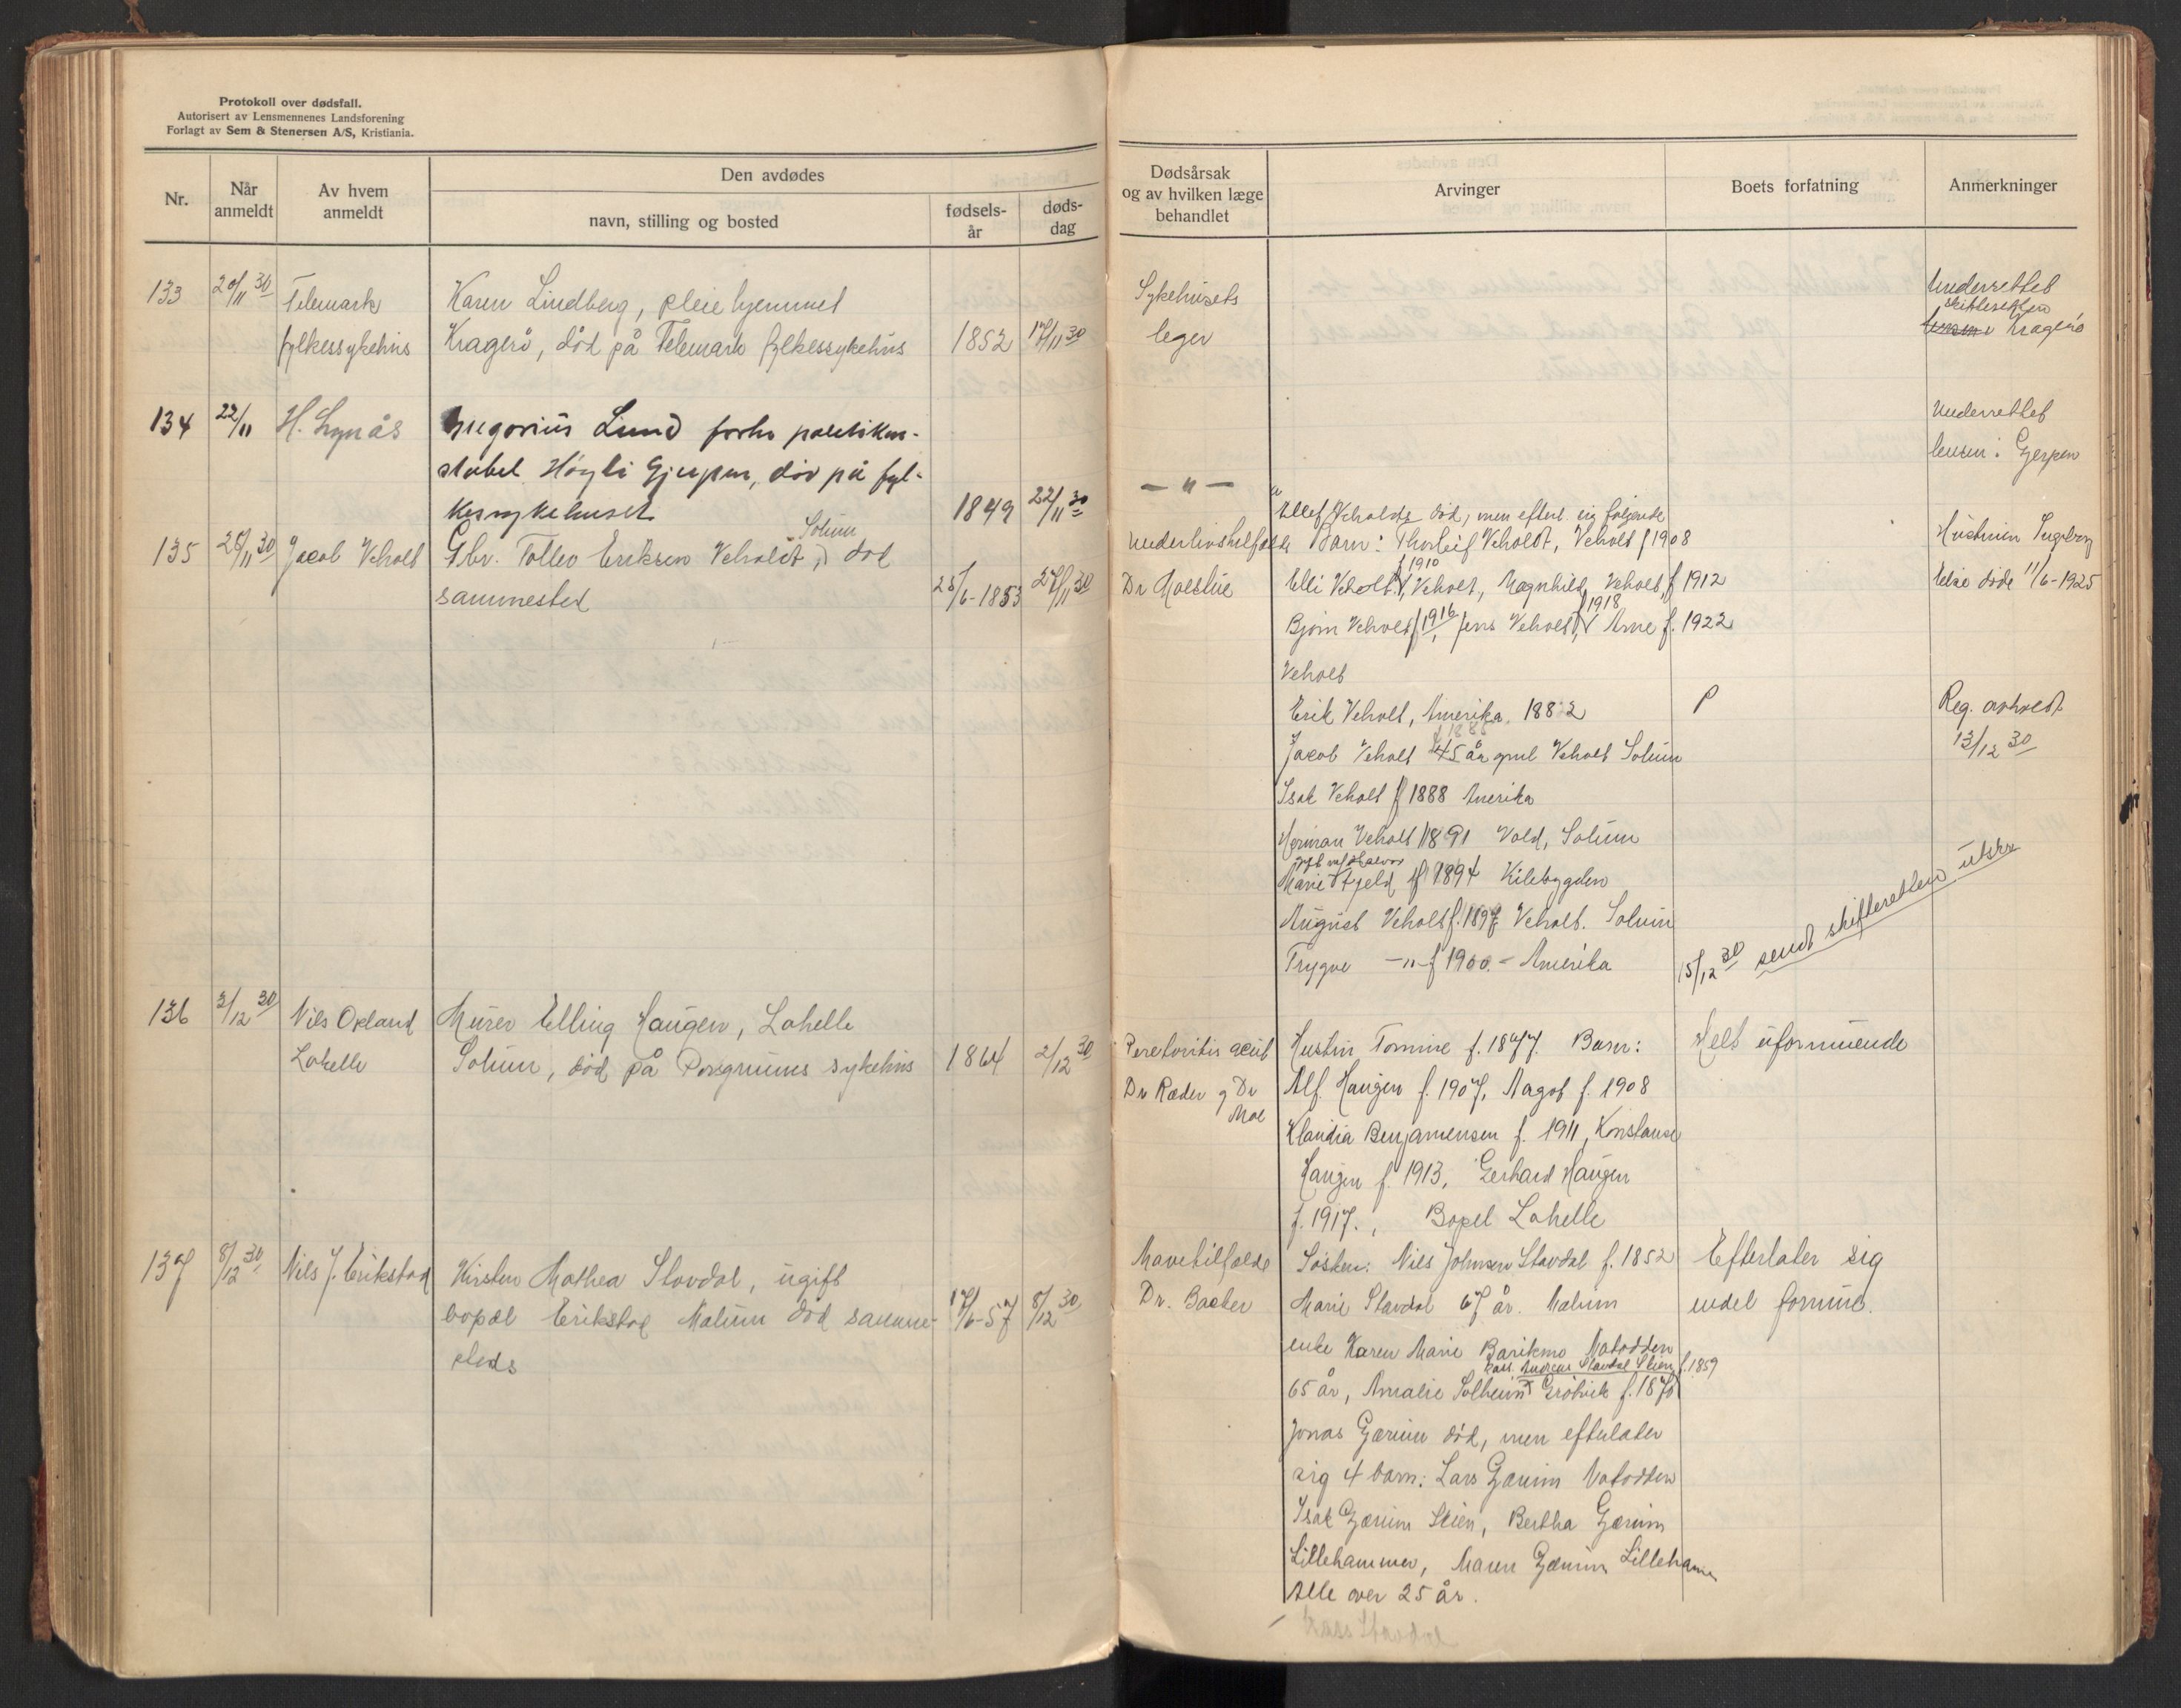 Protokoll over dødsfall.
Autorisert av Lensmennenes Landsforening
Forlagt av Sem & Stenersen A/S, Kristiania.
Nr.
Når anmeldt
Av hvem anmeldt
Den avdødes
navn, stilling og bosted
fødsels-år
døds-dag
Dødsårsak og av hvilken læge behandlet
Arvinger
Boets forfatning
Anmerkninger
133 20/11 30 Telemark Karen Lindberg, pleiehjemmet Sykehusets Underrettet
skifteretten
fylkessykehus Kragerø, død på Telemark fylkessykehus 1852 17/11 30 leger Kragerø
134 22/11 H. Lynås Gregorius Lund forhv politikon- Underrettet
stabel Høgli Gjerpen, død på fyl- lensm i Gjerpen
kessykehuset 1849 22/11 30 — " —
Ellef Veholdt død, men efterl. sig følgende
Solum
135 28/11 30 Jacob Veholt Gbr. Tollev Eriksen Veholdt, død Underlivs Barn: Thorleif Veholdt, Veholt f 1908 Hustruen Ingeborg
f 1910
sammested 25/6-1853 27/11 30 Dr Moestue Elli Veholt, Veholt, Magnhild Veholt, f 1912 Elise døde 11/6-1925
f 1918
Bjørn Veholt f 1916, Jens Veholt, Arne f. 1922
Veholt
Erik Veholt, Amerika 1882 Reg. avholdt
f 1885
Jacob Veholt 45 år gml Veholt Solum 13/12 30
Isak Veholt f 1888 Amerika
Herman Veholt 1891 Vold, Solum
gift m/ Halvor
Marie Fjeld f 1894 Kilebygden
August Veholt f. 1897 Veholt. Solum
Trygve — " — f 1900. – Amerika 15/12 30 sendt skifteretten utskr
136 3/12 30 Nils Økland Murer Elling Haugen, Lahelle Hustru Tomine f. 1877. Barn: Helt uformuende
Lahelle Solum, død på Porsgrunns sykehus 1864 2/12 30 Dr Ræder og Dr Moe Alf. Haugen f. 1907, Aagot f. 1908
Klaudia Benjamensen f. 1911, Konstanse
Haugen f. 1913, Gerhard Haugen
f. 1917., Bopel Lahelle
137 8/12 30 Nils J. Erikstad Kirsten Mathea Stavdal, ugift Mavetilfælde Søsken: Nils Johnsen Stavdal f. 1852 Efterlater sig
bopæl Erikstad Melum død samme- 17/6-57 8/12 30 Dr. Backer Marie Stavdal 67 år. Melum endel formue.
steds
enke Karen Marie Notodden
Andreas Stavdal Skien f. 1859
65 år, Amalie Solheim Grøtvik
Jonas Gærum død, men efterlater
sig 4 barn: Lars Gærum Notodden
Isak Gærum Skien, Bertha Gærum
Lillehammer, Maren Gærum Lillehammer
Alle over 25 år.
Stavdal